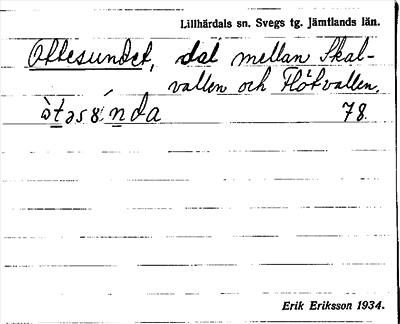 Lillhärdals sn. Svegs tg. Jämtlands län.
Ottesundet, dal mellan Skal-
vallen och Flötvallen,
78.
Erik Eriksson 1934.